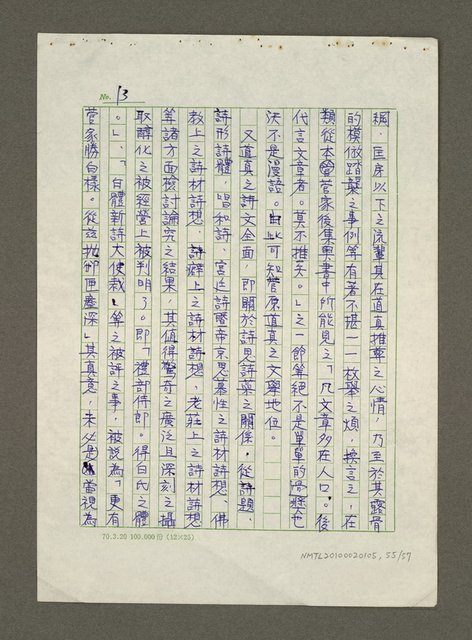 No. 13
綱、匡房以下之流輩其在道真推奉之心情，乃至於其露骨
的模倣踏襲之事例等有著不堪一一枚舉之煩，換言之，在
類從本菅家後集奧書中所能見之「凡文章多在人口。後
代言文章者。莫不推矣。」之一節等絕不是單單的浮獎也
決不是漫語。由此可知菅原道真之文學地位。
又道真之詩文全面，即關於詩思詩藻之關係，從詩題、
詩形詩體，唱和詩、宮廷詩暨帝京思慕性之詩材詩想、佛
教上之詩材詩想、詩癖上之詩材詩想、老莊上之詩材詩想
等諸方面檢討論究之結果，其值得驚奇之廣泛且深刻之攝
取醇化之被經營上被判明了。即「禮部侍郎。得白氏之體
。」、「白體新詩大使裁」等之被評之事，被說為「更有
菅家勝白樣。從茲拋卻匣塵深」其真意，未必是當視為
70.3.20 100.000份 (12×25)
NMTL20100020105, 55/57